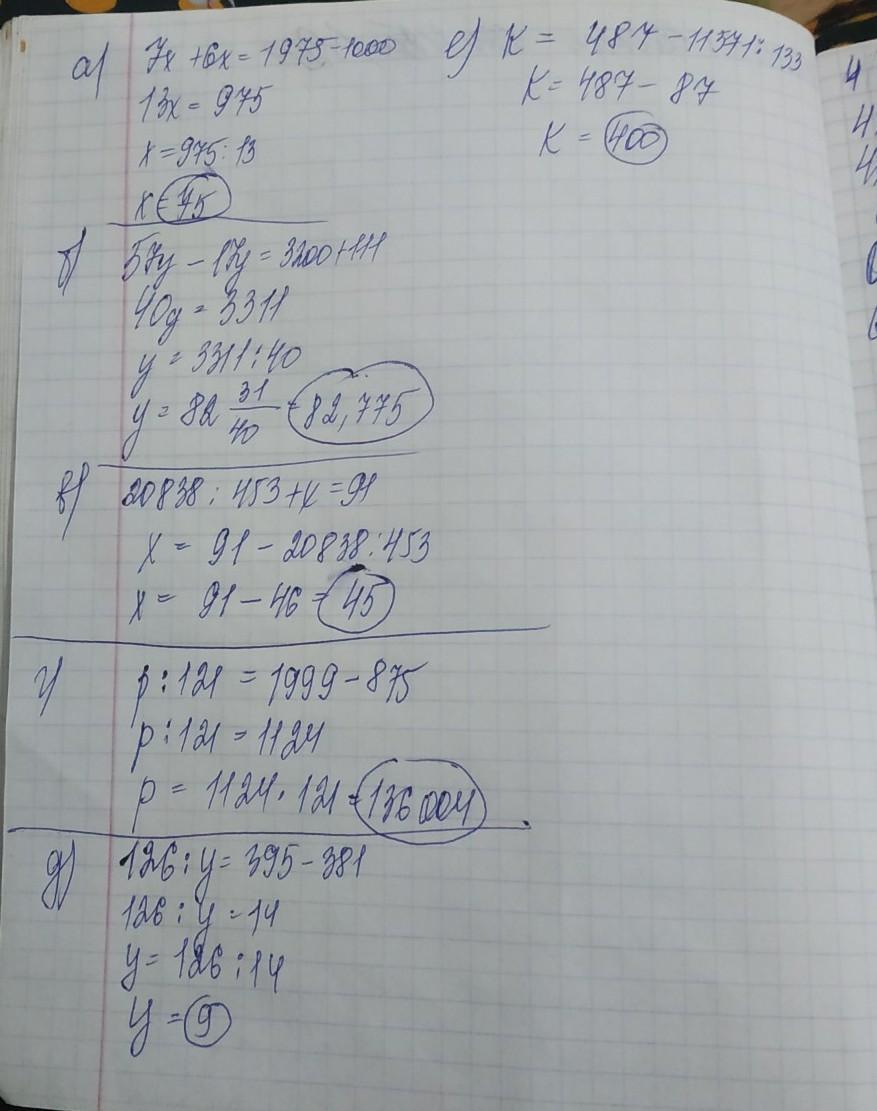 а) 7x + 6x = 1975 - 1000
13x = 975
x = 975 : 13
x = 75
б) 57y - 17y = 3200 + 111
40y = 3311
y = 3311 : 40
y = 82 31/40 = 82,775
в) 20838 : 453 + x = 91
x = 91 - 20838 : 453
x = 91 - 46 = 45
г) p : 121 = 1999 - 875
p : 121 = 1124
p = 1124 · 121 = 136 004
д) 126 : y = 395 - 381
126 : y = 14
y = 126 : 14
y = 9
е) K = 487 - 11571 : 133
K = 487 - 87
K = 400
4
4
4